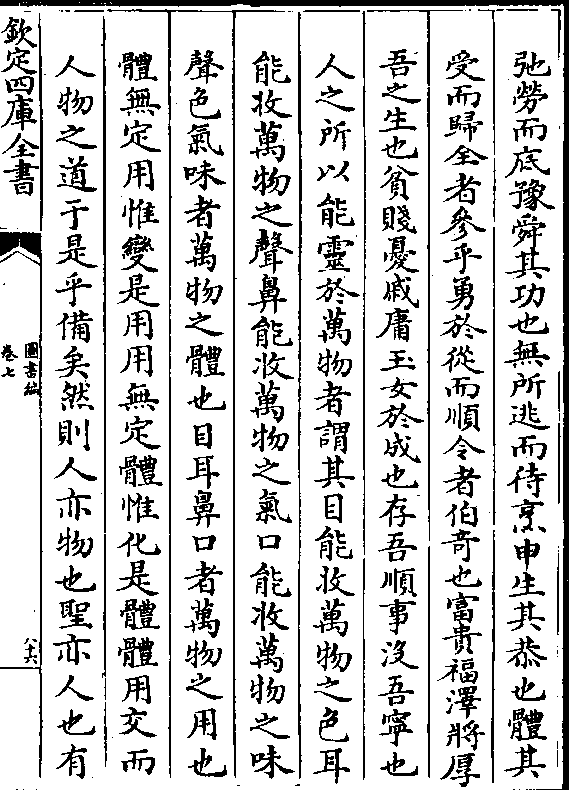 弛勞而底豫舜其功也無所逃而待烹申生其恭也體其
受而歸全者參乎勇於從而順令者伯奇也富貴福澤將厚
吾之生也貧賤憂戚庸玉女於成也存吾順事沒吾寧也
人之所以能靈於萬物者謂其目能收萬物之色耳
能收萬物之聲鼻能收萬物之氣口能收萬物之味
聲色氣味者萬物之體也目耳鼻口者萬物之用也
體無定用惟變是用用無定體惟化是體體用交而
人物之道于是乎備矣然則人亦物也聖亦人也有
欽定四庫全書
圖書編
卷七
六八